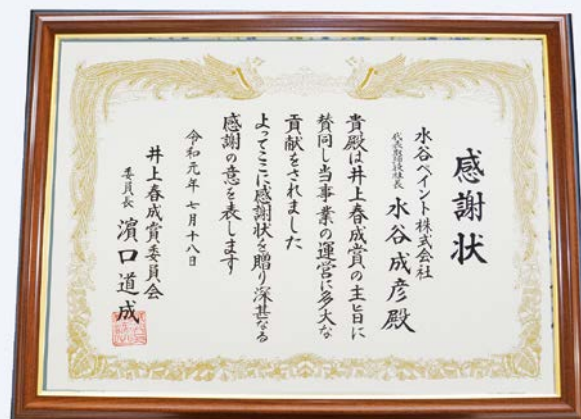 感謝状
水谷ペイント株式会社
代表取締役社長 水谷成彦殿
貴殿は井上春成賞の主旨に
賛同し当事業の運営に多大な
貢献をされました
よってここに感謝状を贈り深甚なる
感謝の意を表します
令和元年七月十八日
井上春成賞委員会
委員長 濱口道成